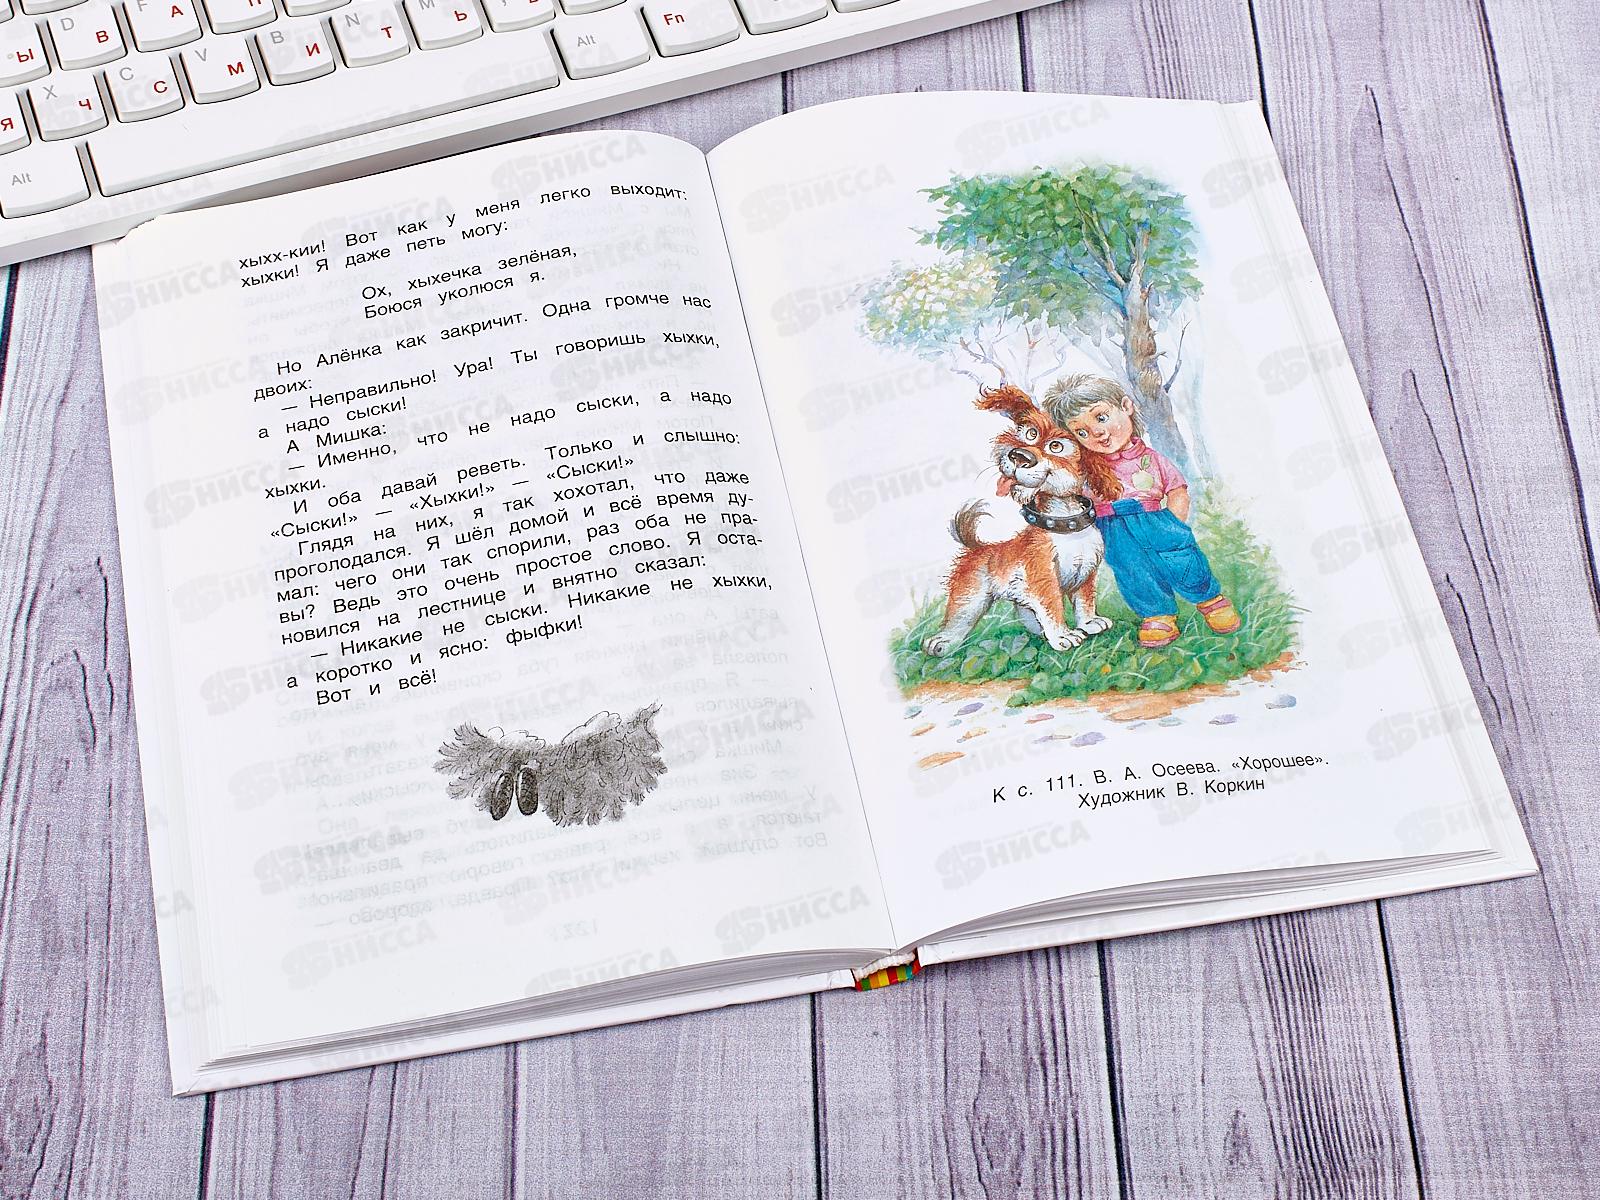 хыхх-кии! Вот как у меня легко выходит:
хыхки! Я даже петь могу:
Ох, хыхечка зелёная,
Боюся уколюся я.
Но Алёнка как закричит. Одна громче нас
двоих:
— Неправильно! Ура! Ты говоришь хыхки,
а надо сыски!
А Мишка:
— Именно, что не надо сыски, а надо
хыхки.
И оба давай реветь. Только и слышно:
«Сыски!» — «Хыхки!» — «Сыски!»
Глядя на них, я так хохотал, что даже
проголодался. Я шёл домой и всё время ду-
мал: чего они так спорили, раз оба не пра-
вы? Ведь это очень простое слово. Я оста-
новился на лестнице и внятно сказал:
— Никакие не сыски. Никакие не хыхки,
а коротко и ясно: фыфки!
Вот и всё!
К с. 111. В. А. Осеева. «Хорошее».
Художник В. Коркин
D F
Ы В А П
X C V B N M
Я Ч С М И Т Ь
Alt
Alt
Fn
НИССА